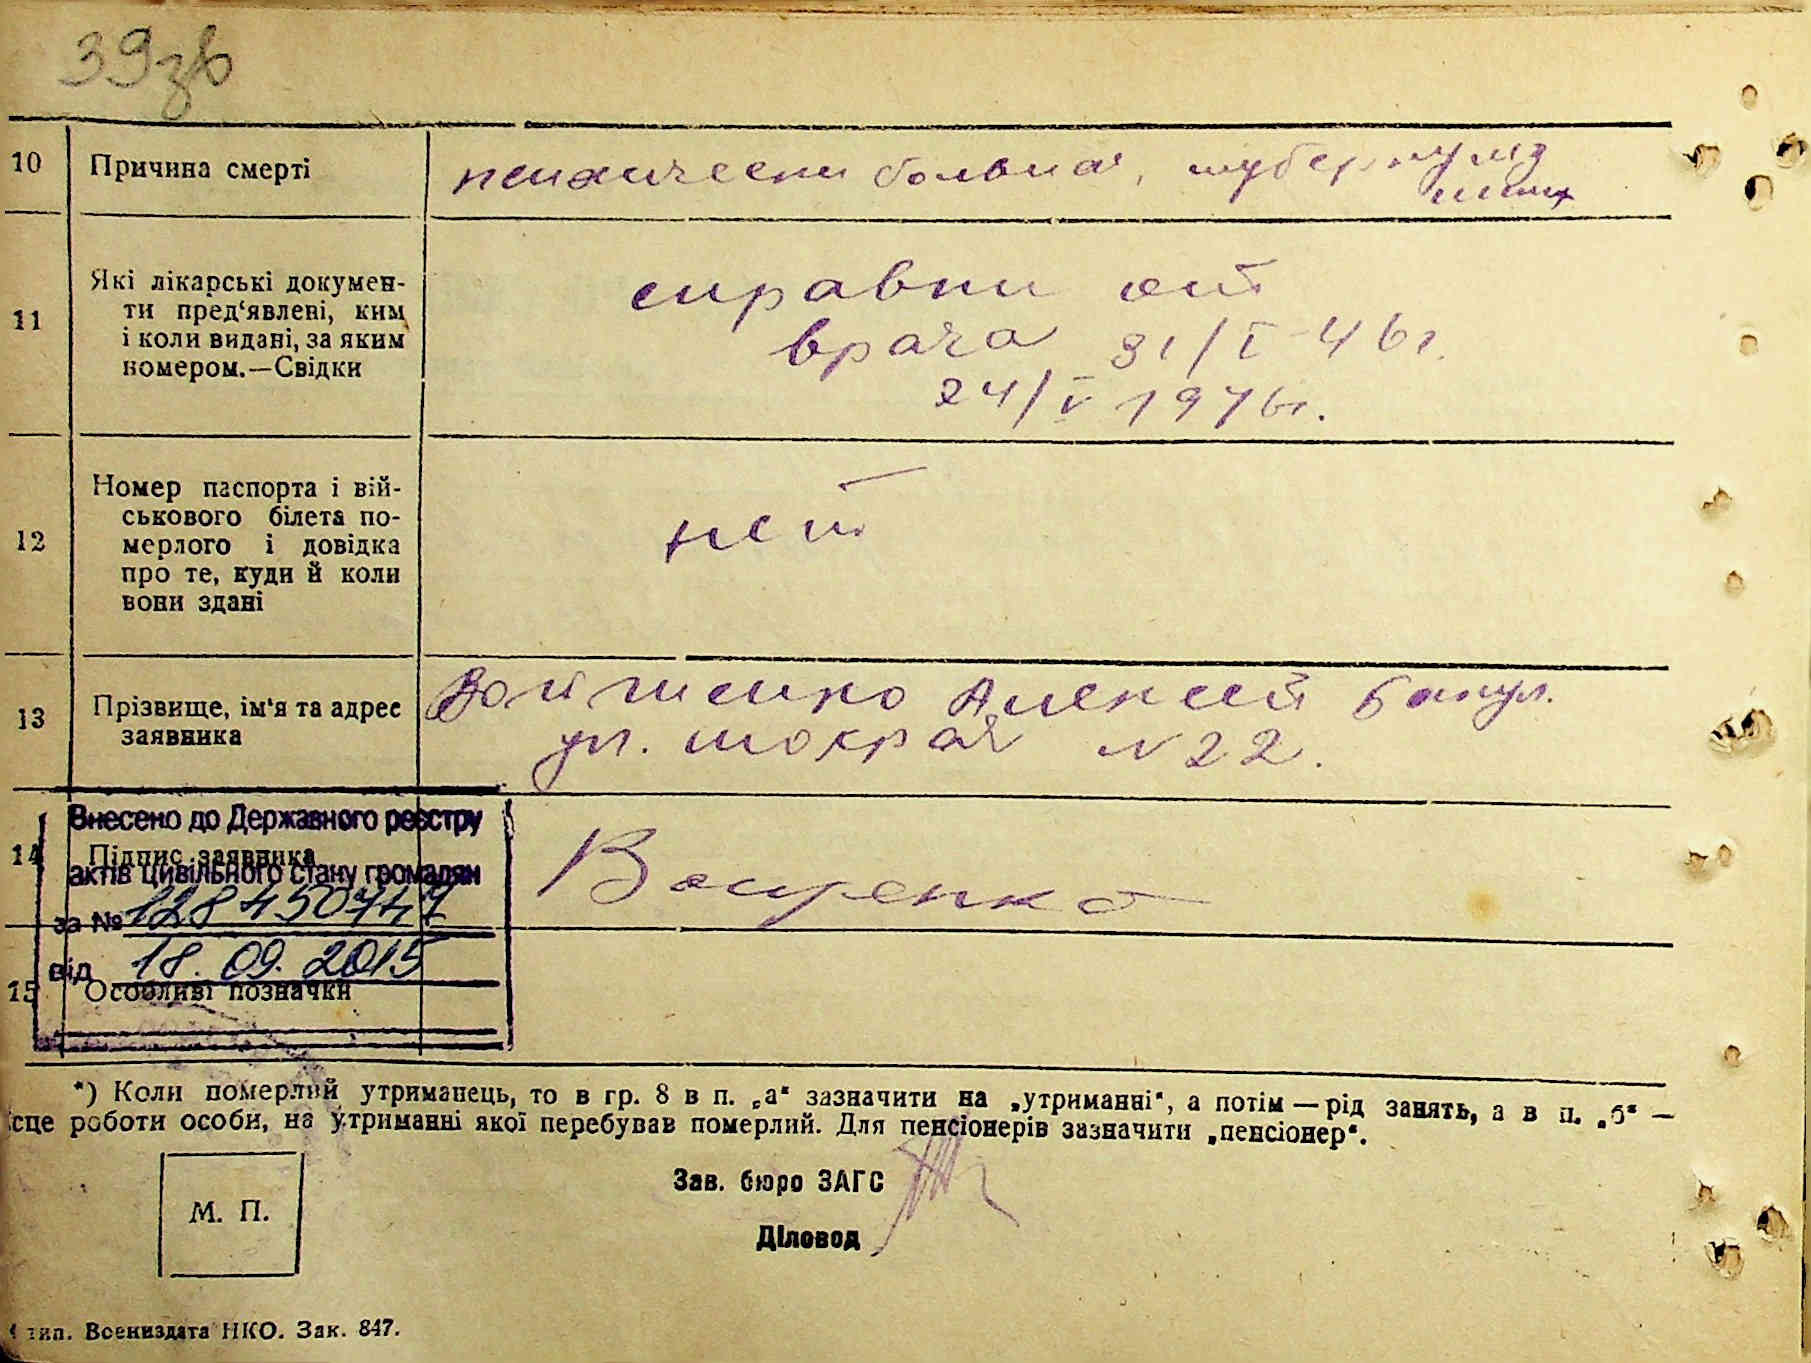 39зв
10 Причина смерті психически больная, туберкулез
11 Які лікарські докумен-
ти пред‘явлені, ким
і коли видані, за яким
номером.—Свідки
справки от
врача 31/I-46г.
24/V 1946г.
12 Номер паспорта і вій-
ськового білета по-
мерлого і довідка
про те, куди й коли
вони здані
нет
13 Прізвище, ім‘я та адрес
заявника
Войтенко Алексей
ул. мокрая N 22.
Внесено до Державного реєстру
14 Підпис заявника
актів цивільного стану громадян
за №
від 18.09.2015
15 Особливі позначки
*) Коли померлий утриманець, то в гр. 8 в п. „а“ зазначити на „утриманні“, а потім — рід занять, а в п. „б“ —
сце роботи особи, на утриманні якої перебував померлий. Для пенсіонерів зазначити „пенсіонер“.
Зав. бюро ЗАГС
М. П.
Діловод
тип. Воениздата НКО. Зак. 847.